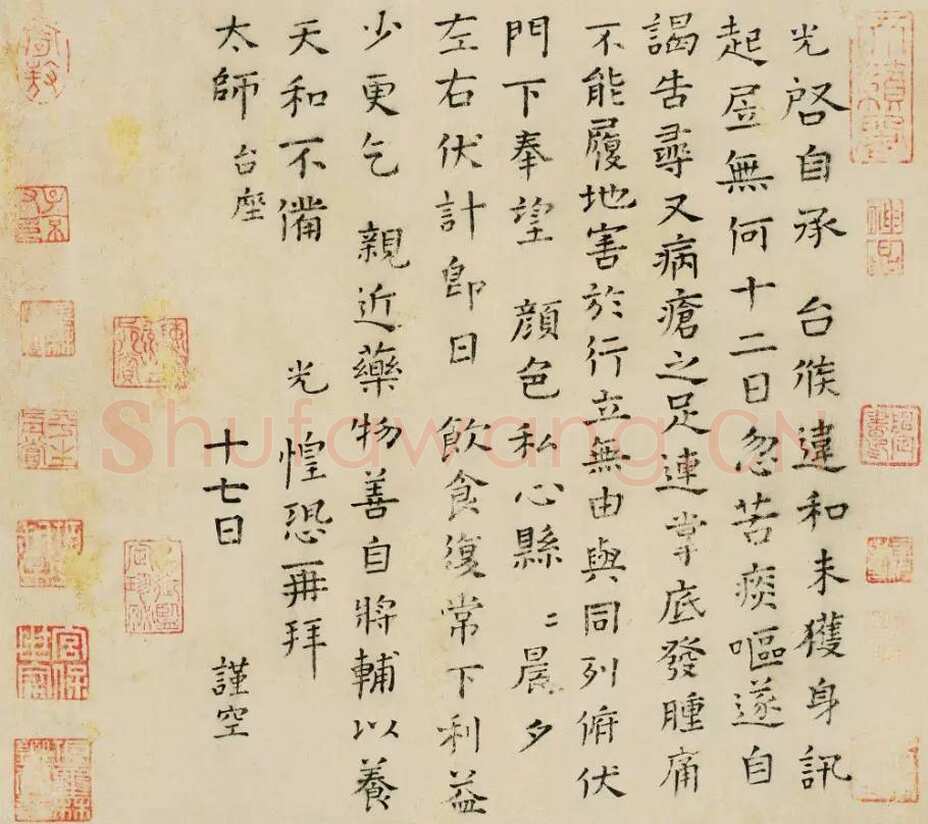 光啓自承 台候違和未獲身訊
起居無何十二日忽苦痰嘔遂自
謁告尋又病瘡之足連掌底發腫痛
不能履地害於行立無由與同列俯伏
門下奉望 顔色私心縣〻晨夕
左右伏計即日 飲食復常下利益
少更乞 親近藥物善自將輔以養
天和不備 光 惶恐再拜
太師 台座 十七日 謹空
Shufawang.CN